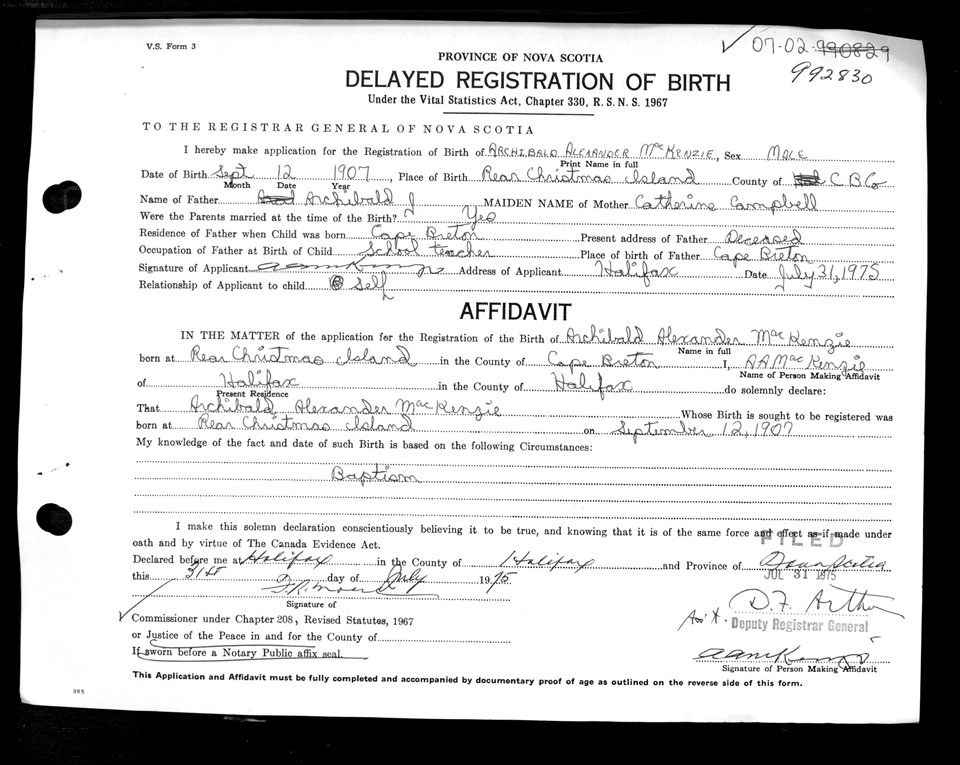 V.S. Form 3
✓ 07-02-990829
992830
PROVINCE OF NOVA SCOTIA
DELAYED REGISTRATION OF BIRTH
Under the Vital Statistics Act, Chapter 330, R.S.N.S. 1967
TO THE REGISTRAR GENERAL OF NOVA SCOTIA
I hereby make application for the Registration of Birth of ARCHIBALD ALEXANDER MacKENZIE, Sex MALE
Print Name in full
Date of Birth Sept 12 1907, Place of Birth Rear Christmas Island County of C B Co
Month Date Year
Name of Father Archibald J MAIDEN NAME of Mother Catherine Campbell
Were the Parents married at the time of the Birth? Yes
Residence of Father when Child was born Cape Breton Present address of Father Deceased
Occupation of Father at Birth of Child School teacher Place of birth of Father Cape Breton
Signature of Applicant Address of Applicant Halifax Date July 31, 1975
Relationship of Applicant to child Self
AFFIDAVIT
IN THE MATTER of the application for the Registration of the Birth of Archibald Alexander MacKenzie
Name in full
born at Rear Christmas Island in the County of Cape Breton I, AA MacKenzie
Name of Person Making Affidavit
of Halifax in the County of Halifax do solemnly declare:
Present Residence
That Archibald Alexander MacKenzie Whose Birth is sought to be registered was
born at Rear Christmas Island on September 12, 1907
My knowledge of the fact and date of such Birth is based on the following Circumstances:
Baptism
I make this solemn declaration conscientiously believing it to be true, and knowing that it is of the same force and effect as if made under
FILED
oath and by virtue of The Canada Evidence Act.
Declared before me at Halifax in the County of Halifax and Province of Nova Scotia
JUL 31 1975
this 31st day of July 1975
Signature of
D.F. Arthur
✓ Commissioner under Chapter 208, Revised Statutes, 1967
Ass't. Deputy Registrar General
or Justice of the Peace in and for the County of
If sworn before a Notary Public affix seal.
Signature of Person Making Affidavit
This Application and Affidavit must be fully completed and accompanied by documentary proof of age as outlined on the reverse side of this form.
385